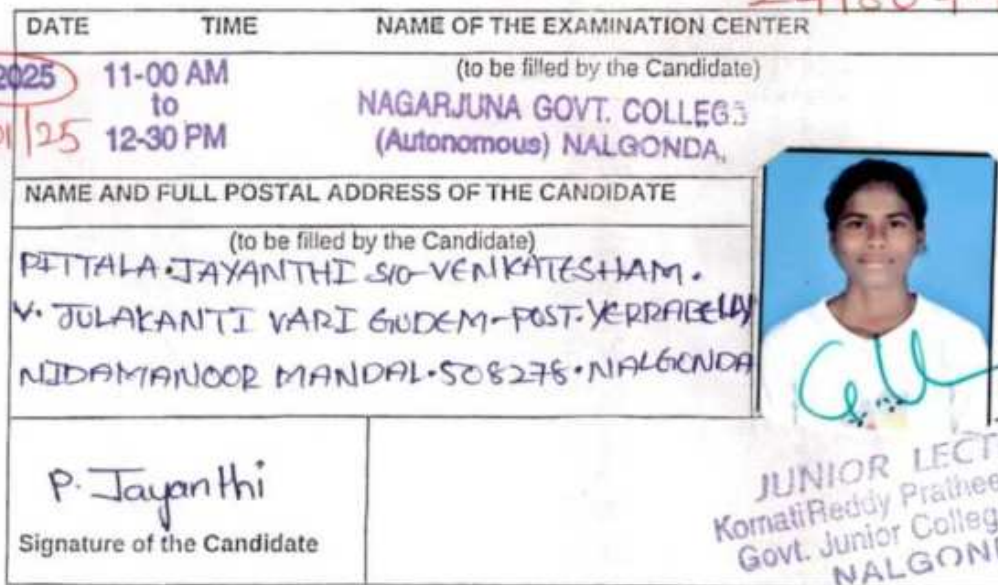 DATE TIME NAME OF THE EXAMINATION CENTER
2025 11-00 AM (to be filled by the Candidate)
to NAGARJUNA GOVT. COLLEGE
01/25 12-30 PM (Autonomous) NALGONDA,
NAME AND FULL POSTAL ADDRESS OF THE CANDIDATE
(to be filled by the Candidate)
PITTALA. JAYANTHI S/O VENKATESHAM.
V. JULAKANTI VARI GUDEM-POST. YERRABELLY
NIDAMANOOR MANDAL. 508278. NALGONDA
P. Jayanthi
Signature of the Candidate
JUNIOR LECT
KomatiReddy Prathee
Govt. Junior Colleg
NALGON